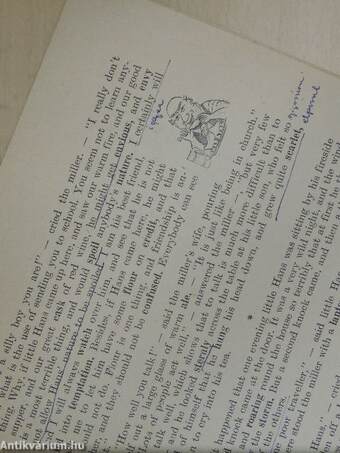 a silly boy you are!" — cried the miller. — "I really don't
what is the use of sending you to school. You seem not to learn any-
thing. Why, if little Hans came up here, and saw our warm fire, and our good
supper, and our great cask of red wine, he might get envious, and envy
is a most terrible thing, and would spoil anybody's nature. I certainly will
allow Hans' nature to be spoiled. I am his best friend,
I will always watch over him, and see that he is not
into temptation. Besides, if Hans came here, he might
me to let him have some flour on credit, and that
could not do. Flour is one thing, and friendship is an-
and they should not be confused. Everybody can see
"How well you talk!" — said the miller's wife, pouring
out a large glass of warm ale. — "It is just like being in church."
"Lots of people act well," — answered the miller —, "but very few
talk well, which shows that to talk is much more difficult than to
he looked silently across the table at his little son, who felt so
of himself that he hung his head down, and grew quite scarlet,
to cry into his tea.
*
happened that one evening little Hans was sitting by his fireside
knock came at the door. It was a very wild night, and the wind
and roaring round the house so terribly, that at first he
the storm. But a second knock came, and then a
poor traveller," — said little
there stood the miller with a
Antikvárium.hu